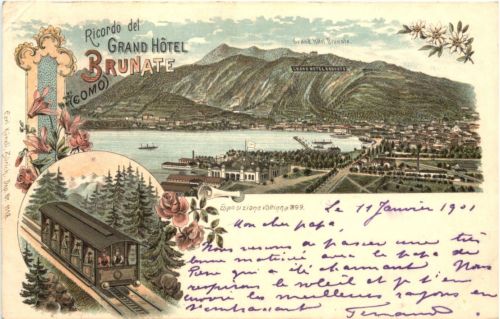 Ricordo del
GRAND HÔTEL
BRUNATE
(COMO)
Grand Hôtel Brunate.
GRAND HOTEL BRUNATE
Esposizione Voltiana 1899.
Le 11 Janvier 1901
Mon cher papa,
Nous venons de passer une très
bonne matinée avec le papa de
qui a été charmant Nous
respirons le soleil et je t'en
envoie les meilleurs rayons en
t'embrassant Fernand